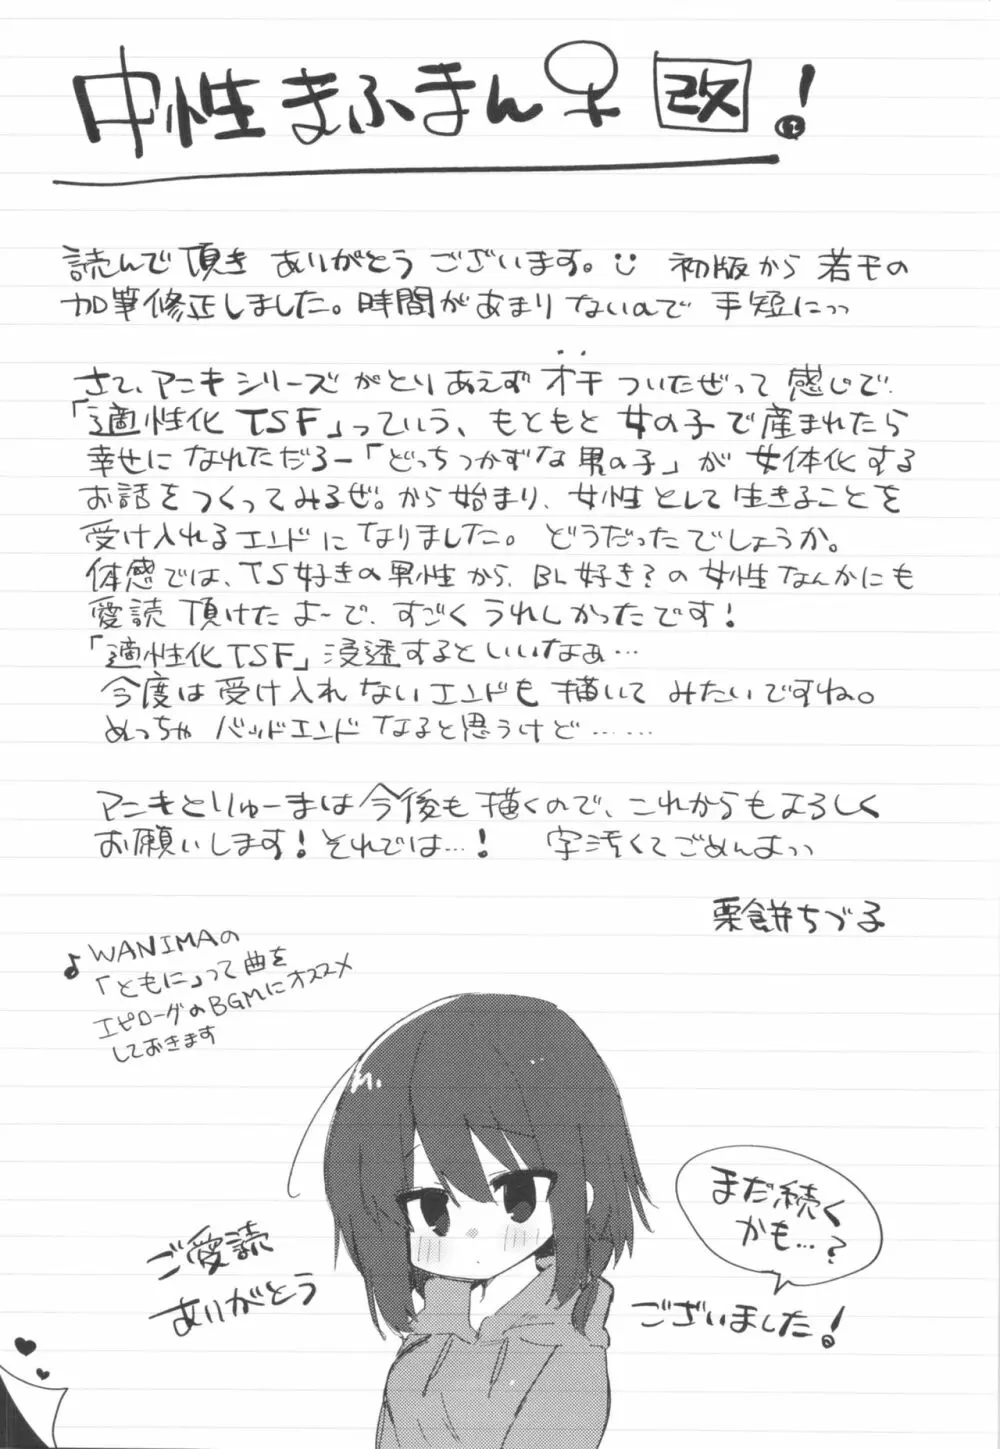 中性まふまん♀ 改!
読んで頂きありがとうございます。 初版から若干の
加筆修正しました。時間があまりないので 手短にっっ
さて、アニキシリーズがとりあえずオチついたぜって感じで、
「適性化TSF」っていう、もともと女の子で産まれたら
幸せになれただろー「どっちつかずな男の子」が女体化する
お話をつくってみるぜ。から始まり、女性として生きることを
受け入れるエンドになりました。どうだったでしょうか。
体感では、TS好きの男性から、BL好き?の女性なんかにも
愛読頂けたよーで、すごくうれしかったです!
「適性化TSF」浸透するといいなぁ…
今度は受け入れないエンドも描いてみたいですね。
めっちゃバッドエンドなると思うけど……
アニキとりゅーまは今後も描くので、これからもよろしく
お願いします!それでは…! 字汚くてごめんよっっ
栗餅ちづ子
♪WANIMAの
「ともに」って曲を
エピローグのBGMにオススメ
しておきます
まだ続く
かも…?
ご愛読
ありがとう
ございました!